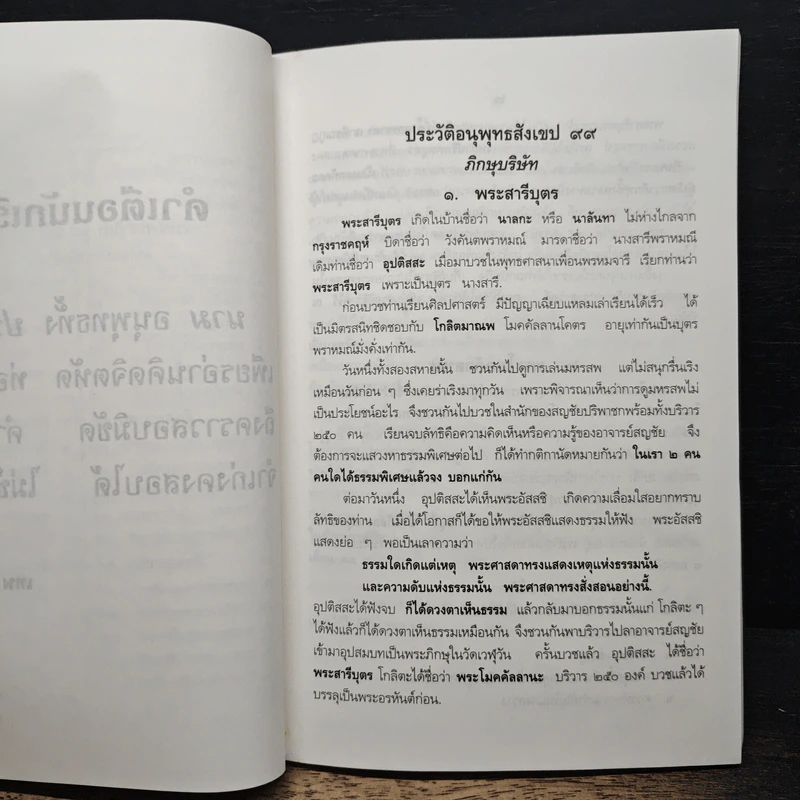 ประวัติอนุพุทธสังเขป ๙๙
ภิกษุบริษัท
๑. พระสารีบุตร
พระสารีบุตร เกิดในบ้านชื่อว่า นาลกะ หรือ นาลันทา ไม่ห่างไกลจาก
กรุงราชคฤห์ บิดาชื่อว่า วังคันตพราหมณ์ มารดาชื่อว่า นางสารีพราหมณี
เดิมท่านชื่อว่า อุปติสสะ เมื่อมาบวชในพุทธศาสนาเพื่อนพรหมจารี เรียกท่านว่า
พระสารีบุตร เพราะเป็นบุตร นางสารี.
ก่อนบวชท่านเรียนศิลปศาสตร์ มีปัญญาเฉียบแหลมเล่าเรียนได้เร็ว ได้
เป็นมิตรสนิทชิดชอบกับ โกลิตมาณพ โมคคัลลานโคตร อายุเท่ากันเป็นบุตร
พราหมณ์มั่งคั่งเท่ากัน.
วันหนึ่งทั้งสองสหายนั้น ชวนกันไปดูการเล่นมหรสพ แต่ไม่สนุกรื่นเริง
เหมือนวันก่อน ๆ ซึ่งเคยร่าเริงมาทุกวัน เพราะพิจารณาเห็นว่าการดูมหรสพไม่
เป็นประโยชน์อะไร จึงชวนกันไปบวชในสำนักของสญชัยปริพาชกพร้อมทั้งบริวาร
๒๕๐ คน เรียนจบลัทธิคือความคิดเห็นหรือความรู้ของอาจารย์สญชัย จึง
ต้องการจะแสวงหาธรรมพิเศษต่อไป ก็ได้ทำกติกานัดหมายกันว่า ในเรา ๒ คน
คนใดได้ธรรมพิเศษแล้วจง บอกแก่กัน
ต่อมาวันหนึ่ง อุปติสสะได้เห็นพระอัสสชิ เกิดความเลื่อมใสอยากทราบ
ลัทธิของท่าน เมื่อได้โอกาสก็ได้ขอให้พระอัสสชิแสดงธรรมให้ฟัง พระอัสสชิ
แสดงย่อ ๆ พอเป็นเลาความว่า
ธรรมใดเกิดแต่เหตุ พระศาสดาทรงแสดงเหตุแห่งธรรมนั้น
และความดับแห่งธรรมนั้น พระศาสดาทรงสั่งสอนอย่างนี้.
อุปติสสะได้ฟังจบ ก็ได้ดวงตาเห็นธรรม แล้วกลับมาบอกธรรมนั้นแก่ โกลิตะ ๆ
ได้ฟังแล้วก็ได้ดวงตาเห็นธรรมเหมือนกัน จึงชวนกันพาบริวารไปลาอาจารย์สญชัย
เข้ามาอุปสมบทเป็นพระภิกษุในวัดเวฬุวัน ครั้นบวชแล้ว อุปติสสะ ได้ชื่อว่า
พระสารีบุตร โกลิตะได้ชื่อว่า พระโมคคัลลานะ บริวาร ๒๕๐ องค์ บวชแล้วได้
บรรลุเป็นพระอรหันต์ก่อน.